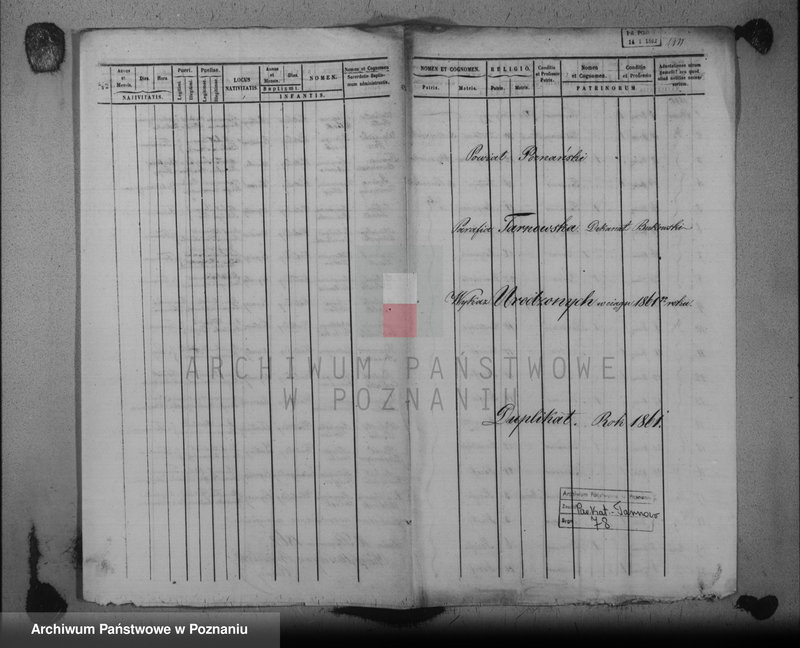 Annus et Mensis. Dies. Hora. Pueri. Puellae. LOCUS NATIVITATIS. Annus et Mensis. Dies. NOMEN. Nomen et Cognomen Sacerdotis Baptismum administrantis.
NATIVITATIS. Legitimi. Illegitimi. Legitimae. Illegitimae. Baptismi. INFANTIS.
14 1 1862
NOMEN ET COGNOMEN. RELIGIO. Conditio et Professio Patris. Nomen et Cognomen. Conditio et Professio
Patris. Matris. Patris. Matris. PATRINORUM
Powiat Poznański
Parafia Tarnowska Dekanat Bukowski
Wykaz Urodzonych w ciągu 1861 roku.
Duplikat. Rok 1861.
Archiwum Państwowe w Poznaniu
Par. Kat. Tarnowo
Sygn. 78
ARCHIWUM PAŃSTWOWE
W POZNANIU
Archiwum Państwowe w Poznaniu